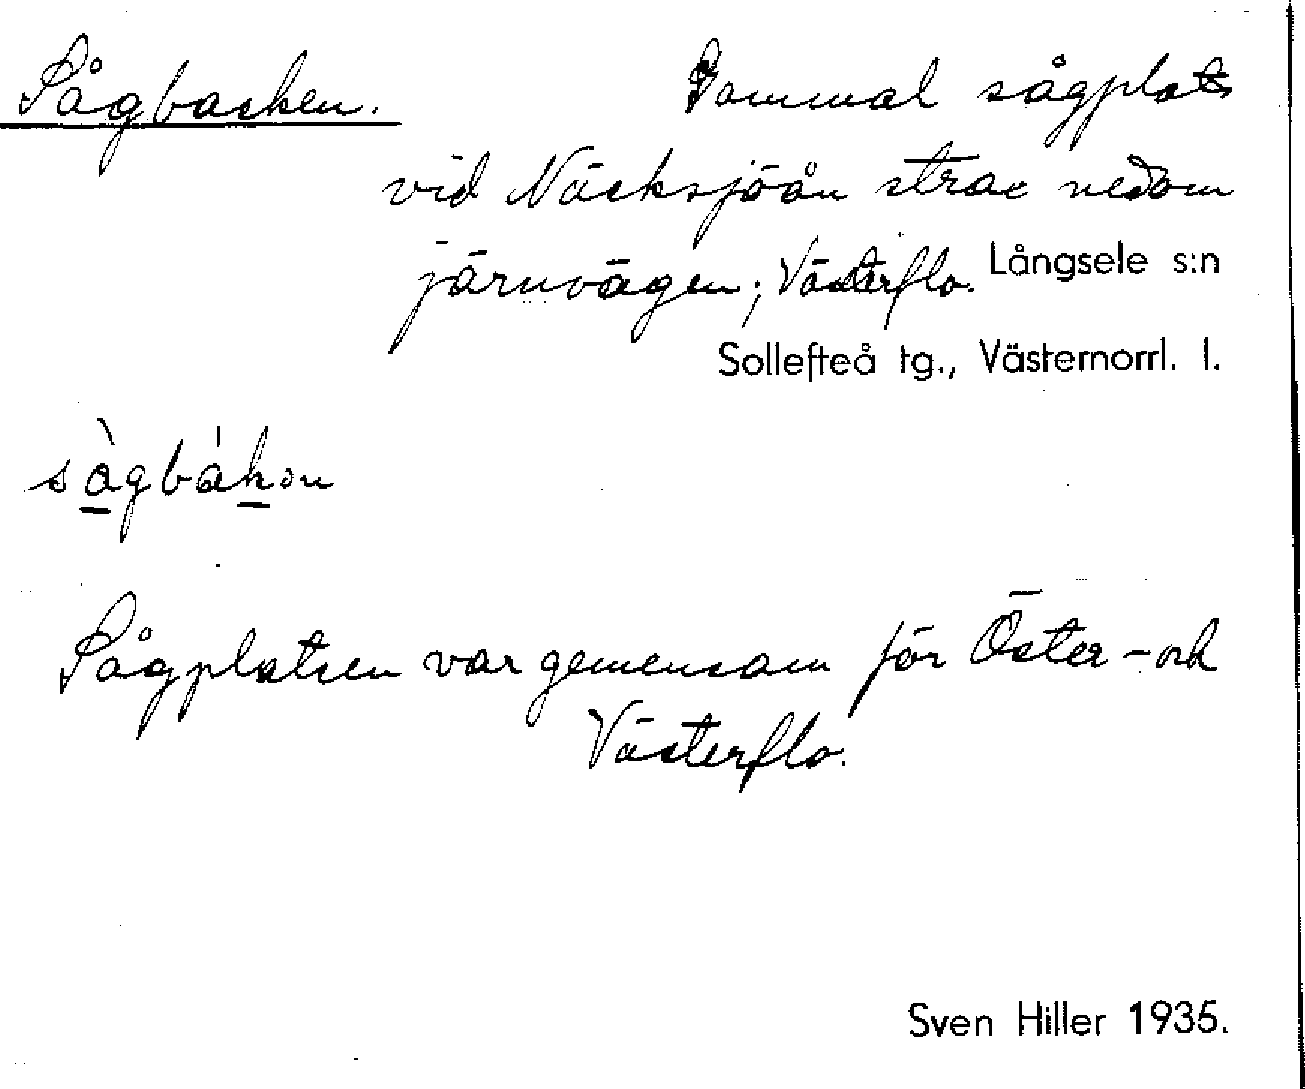 Sågbacken. Gammal sågplats
vid Näcksjöån strax nedom
järnvägen, Västerflo. Långsele s:n
Sollefteå tg., Västernorrl. l.
sàgbákən
Sågplatsen var gemensam för Öster- och
Västerflo.
Sven Hiller 1935.